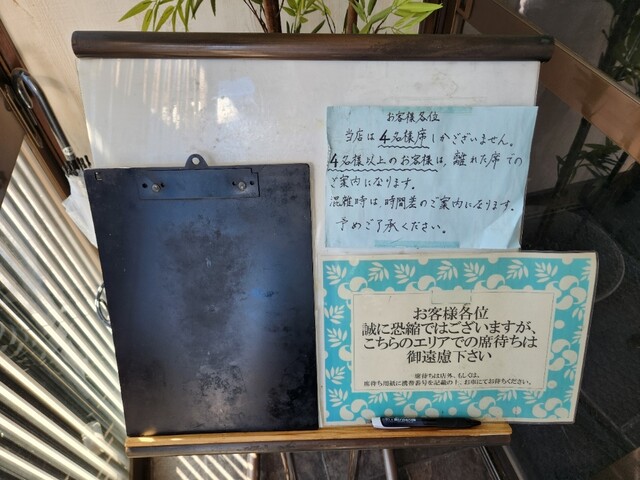 お客様各位
当店は4名様席しかございません。
4名様以上のお客様は、離れた席での
ご案内になります。
混雑時は、時間差のご案内になります。
予めご了承ください。
お客様各位
誠に恐縮ではございますが、
こちらのエリアでの席待ちは
御遠慮下さい
席待ちは店外、もしくは、
席待ち用紙に携帯番号を記載の上、お車にてお待ちください。